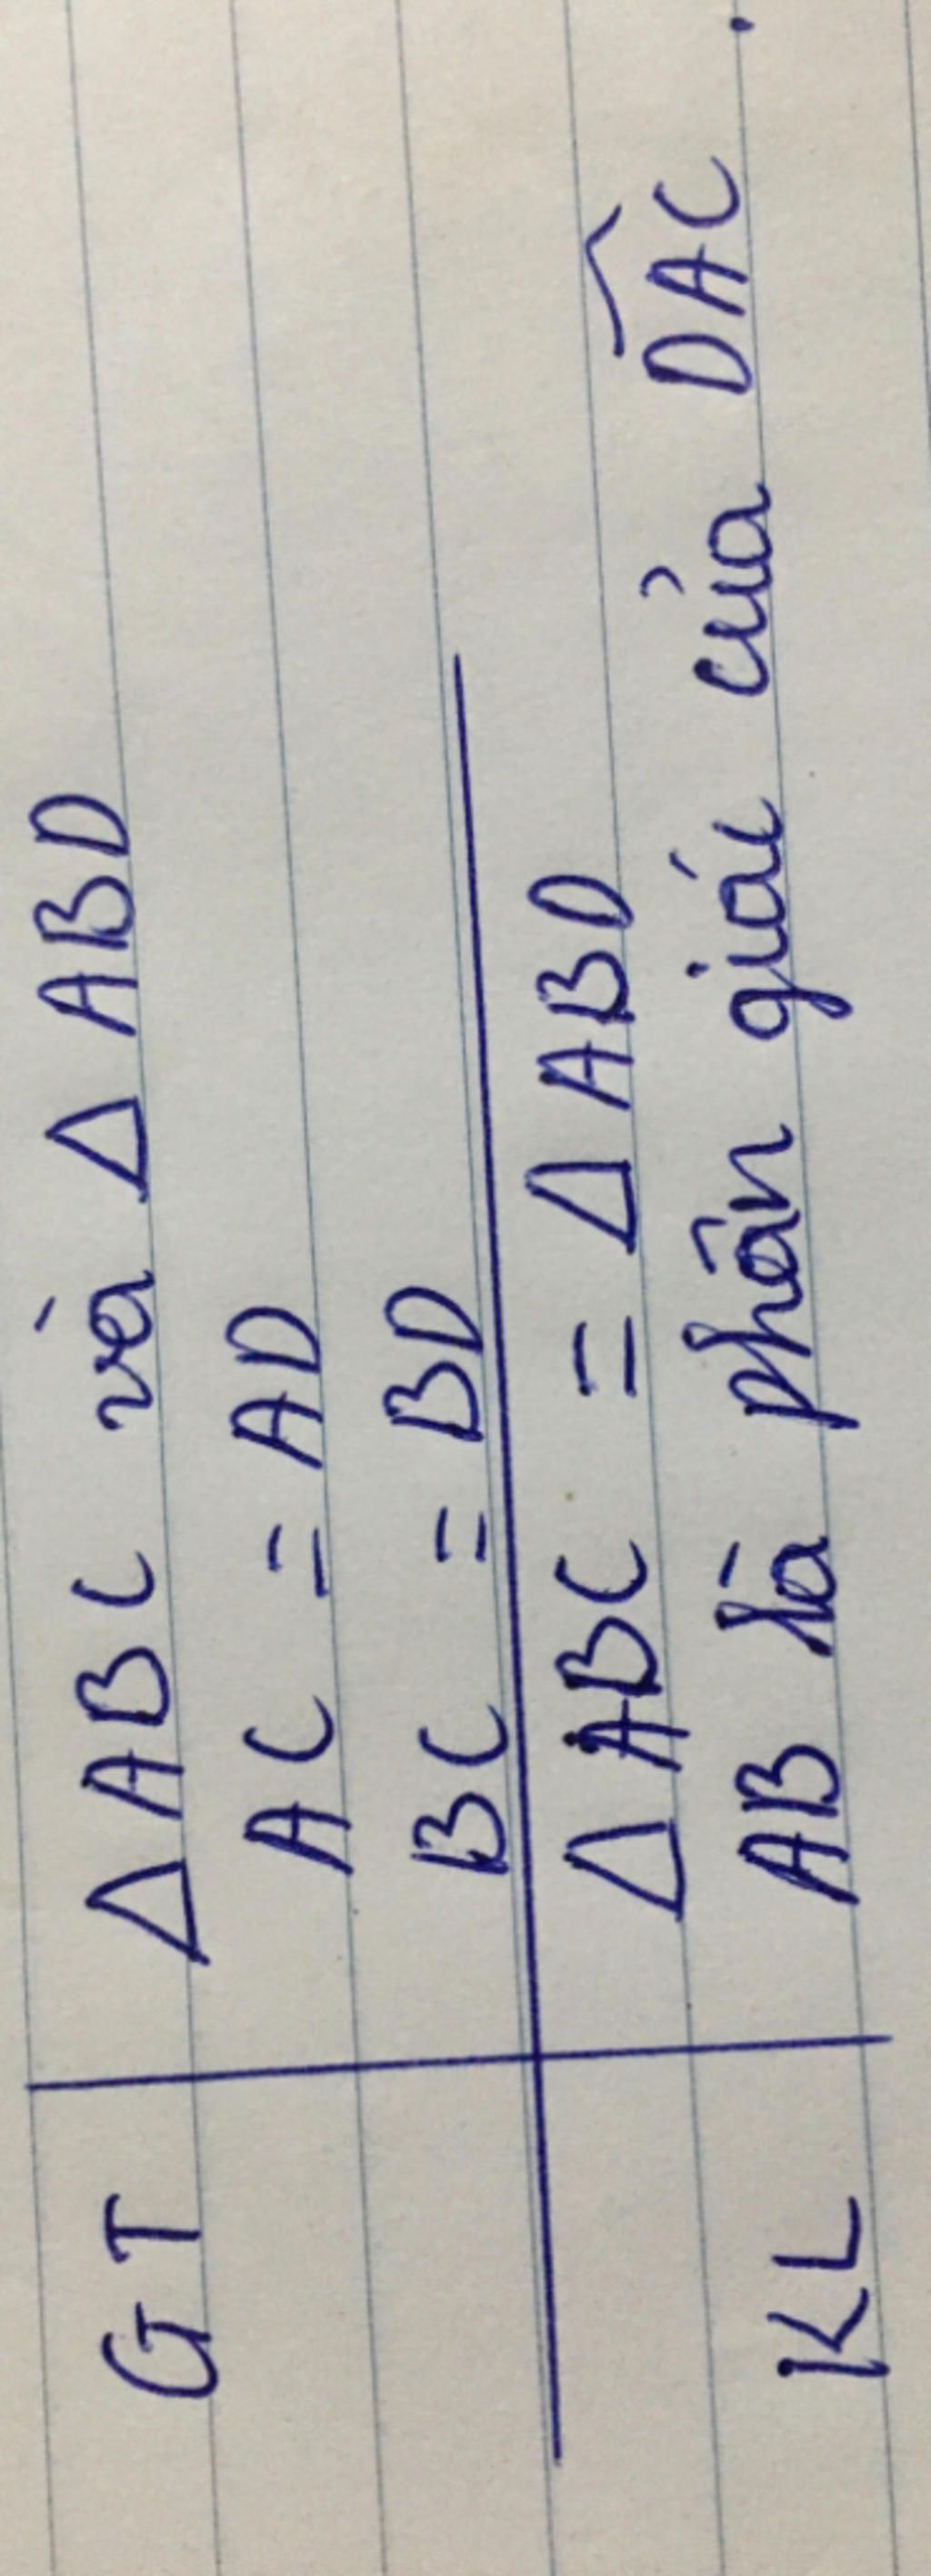 GT ΔABC và ΔABD
AC = AD
BC = BD
ΔABC = ΔABD
KL AB là phân giác của \widehat{DAC}.